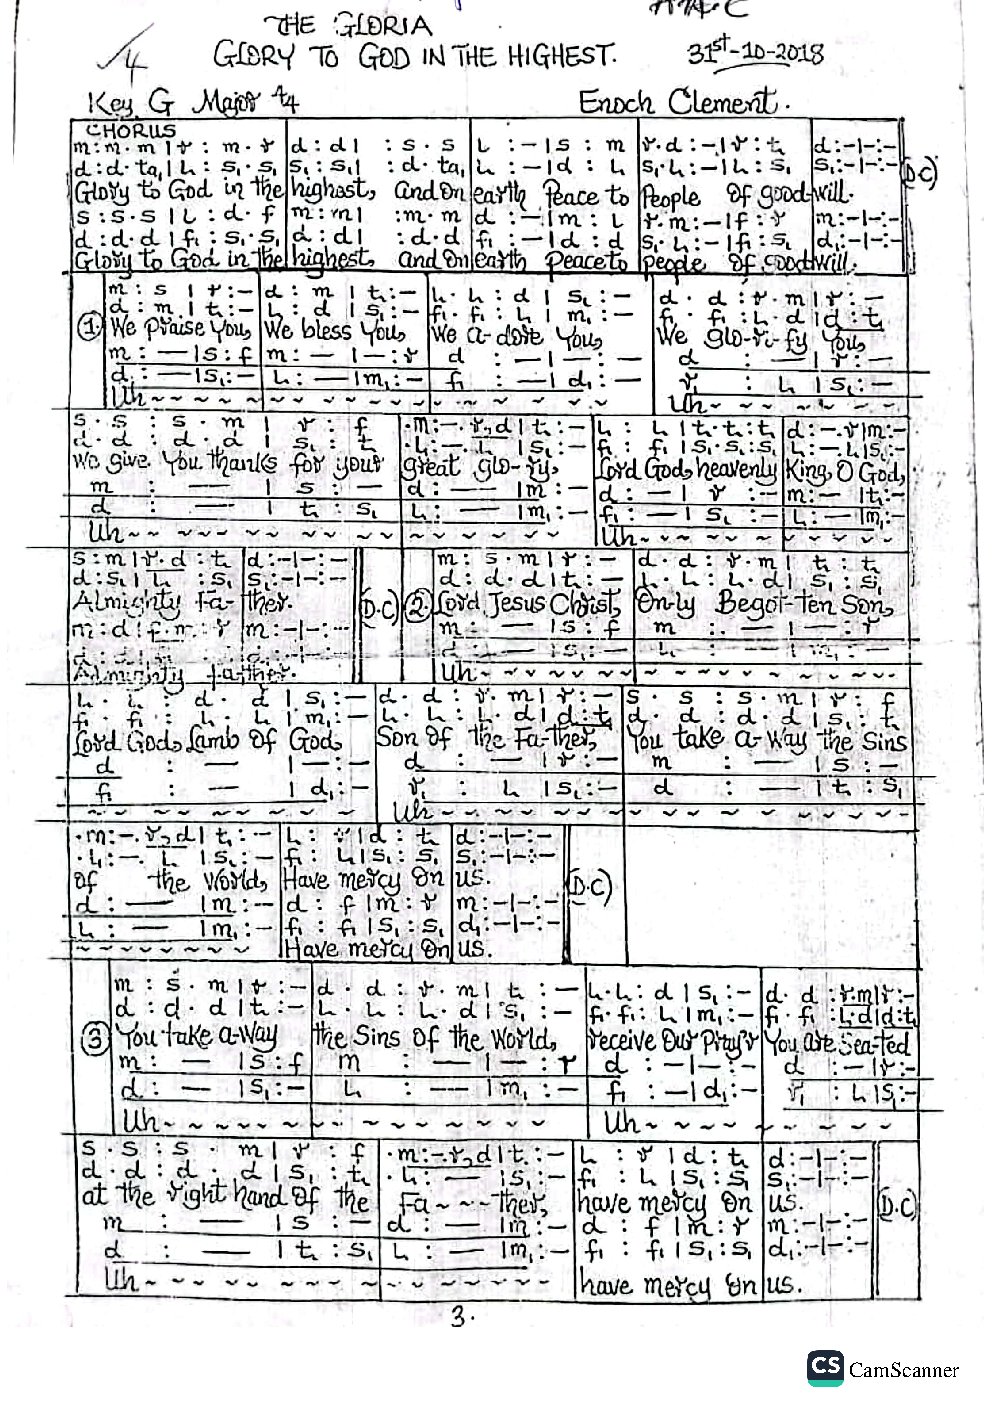 THE GLORIA
GLORY TO GOD IN THE HIGHEST. 31st-10-2018
Key G Major 4/4 Enoch Clement.
CHORUS
m : m . m | r : m . r | d : d | : s . s | l₁ : - | s : m | r . d : - | r : t₁ | d : - | - : -
d : d . ta₁ | l₁ : s₁ . s₁ | s₁ : s₁ | : d . ta₁ | l₁ : - | d : l₁ | s₁ . l₁ : - | l₁ : s₁ | s₁ : - | - : - (D.C)
Glory to God in the highest, and on earth Peace to People of good-will.
s : s . s | l : d . f | m : m | : m . m | d : - | m : l | r . m : - | f : r | m : - | - : -
d : d . d | f₁ : s₁ . s₁ | d : d | : d . d | f₁ : - | d : d | s₁ . l₁ : - | f₁ : s₁ | d₁ : - | - : -
Glory to God in the highest, and on earth Peace to people of good will.
m : s | r : - | d : m | t₁ : - | l₁ . l₁ : d | s₁ : - | d . d : r . m | r : -
d : m | t₁ : - | l₁ : d | s₁ : - | f₁ . f₁ : l₁ | m₁ : - | f₁ . f₁ : l₁ . d | d : t₁
① We Praise You, We bless You, We a-dore You, We glo-ri-fy You,
m : — | s : f | m : — | — : r | d : — | — : — | d : — | r : —
d : — | s₁ : - | l₁ : — | m₁ : - | f₁ : — | d₁ : - | r₁ : l₁ | s₁ : —
Uh~ ~ ~ ~ ~ ~ ~ ~ Uh~ ~ ~ ~
s . s : s . m | r : f | . m : - . r, d | t₁ : - | l₁ : l₁ | t₁ . t₁ : t₁ | d : - . r | m : -
d . d : d . d | s₁ : t₁ | . l₁ : - . l₁ | s₁ : - | f₁ : f₁ | s₁ . s₁ : s₁ | l₁ : - . l₁ | s₁ : -
We give You thanks for your great glo-ry, Lord God, heavenly King, O God,
m : — | s : — | d : — | m : - | d : — | r : - | m : — | t₁ : -
d : — | t₁ : s₁ | l₁ : — | m₁ : - | f₁ : — | s₁ : - | l₁ : — | m₁ : -
Uh~ ~ ~ ~ ~ ~ ~ ~ Uh~ ~ ~ ~
s : m | r . d : t₁ | d : - | - : - | m : s . m | r : — | d . d : r . m | t₁ : t₁
d : s₁ | l₁ : s₁ | s₁ : - | - : - | d : d . d | t₁ : — | l₁ . l₁ : l₁ . d | s₁ : s₁
Almighty Fa-ther. (D.C) ② Lord Jesus Christ, On-ly Begot-ten Son,
m : d | f . m : r | m : - | - : - | m : — | s : f | m : — | — : r
d : — | s₁ : - | l₁ : — | m₁ : —
Almighty father. Uh~ ~ ~ ~ ~ ~ ~ ~
l₁ . l₁ : d . d | s₁ : — | d . d : r . m | r : — | s . s : s . m | r : f
f₁ . f₁ : l₁ . l₁ | m₁ : — | l₁ . l₁ : l₁ . d | d : t₁ | d . d : d . d | s₁ : t₁
Lord God, Lamb of God, Son of the Fa-ther, You take a-way the Sins
d : — | — : — | d : — | r : — | m : — | s : —
f₁ : — | d₁ : — | r₁ : l₁ | s₁ : — | d : — | t₁ : s₁
~ ~ ~ ~ ~ ~ Uh~ ~ ~ ~ ~ ~ ~ ~
. m : - . r, d | t₁ : - | l₁ : r | d : t₁ | d : - | - : -
. l₁ : - . l₁ | s₁ : - | f₁ : l₁ | s₁ : s₁ | s₁ : - | - : -
of the World, Have mercy on us. (D.C)
d : — | m : - | d : f | m : r | m : - | - : -
l₁ : — | m₁ : - | f₁ : f₁ | s₁ : s₁ | d₁ : - | - : -
~ ~ ~ ~ ~ ~ Have mercy on us.
m : s . m | r : - | d . d : r . m | t₁ : — | l₁ . l₁ : d | s₁ : - | d . d : r . m | r : -
d : d . d | t₁ : - | l₁ . l₁ : l₁ . d | s₁ : — | f₁ . f₁ : l₁ | m₁ : - | f₁ . f₁ : l₁ . d | d : t₁
③ You take a-way the Sins of the World, receive Our Pray'r You are Sea-ted
m : — | s : f | m : — | — : r | d : — | — : — | d : — | r : -
d : — | s₁ : - | l₁ : — | m₁ : — | f₁ : — | d₁ : - | r₁ : l₁ | s₁ : -
Uh~ ~ ~ ~ ~ ~ ~ ~ Uh~ ~ ~ ~ ~ ~ ~
s . s : s . m | r : f | . m : - . r, d | t₁ : - | l₁ : r | d : t₁ | d : - | - : -
d . d : d . d | s₁ : t₁ | . l₁ : — | s₁ : - | f₁ : l₁ | s₁ : s₁ | s₁ : - | - : -
at the right hand of the Fa~~~ther, have mercy on us. (D.C)
m : — | s : — | d : — | m : - | d : f | m : r | m : - | - : -
d : — | t₁ : s₁ | l₁ : — | m₁ : - | f₁ : f₁ | s₁ : s₁ | d₁ : - | - : -
Uh~ ~ ~ ~ ~ ~ ~ ~ have mercy on us.
3.
CS CamScanner